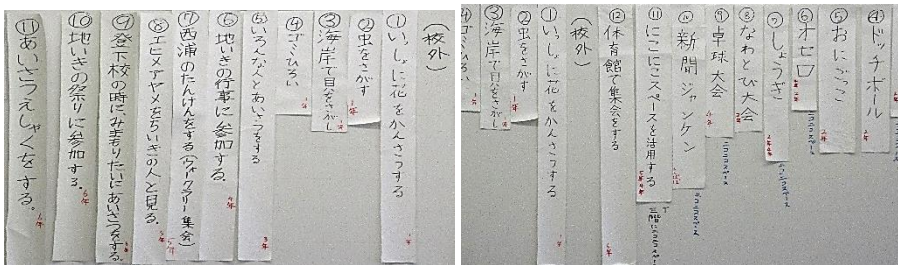 (校外)
①いっしょに花をかんさつする 1年
②虫をさがす 1年
③海岸で貝をさがし 1年
④ゴミひろい
⑤いろんな人とあいさつをする 3年
⑥地いきの行事に参加する 4年
⑦西浦のたんけんをする(ウォークラリー集会) 5年
⑧エヒメアヤメをちいきの人と見る。
⑨登下校の時にみまもりたいにあいさつをする。
⑩地いきの祭りに参加する。
⑪あいさつえしゃくをする。
④ドッチボール
⑤おにごっこ 2年
⑥オセロ
⑦しょうぎ
⑧なわとび大会
⑨卓球大会
⑩新聞ジャンケン
⑪にこにこスペースを活用する
⑫体育館で集会をする
(校外)
①いっしょに花をかんさつする
②虫をさがす 1年
③海岸で貝をさがし 1年
④ゴミひろい